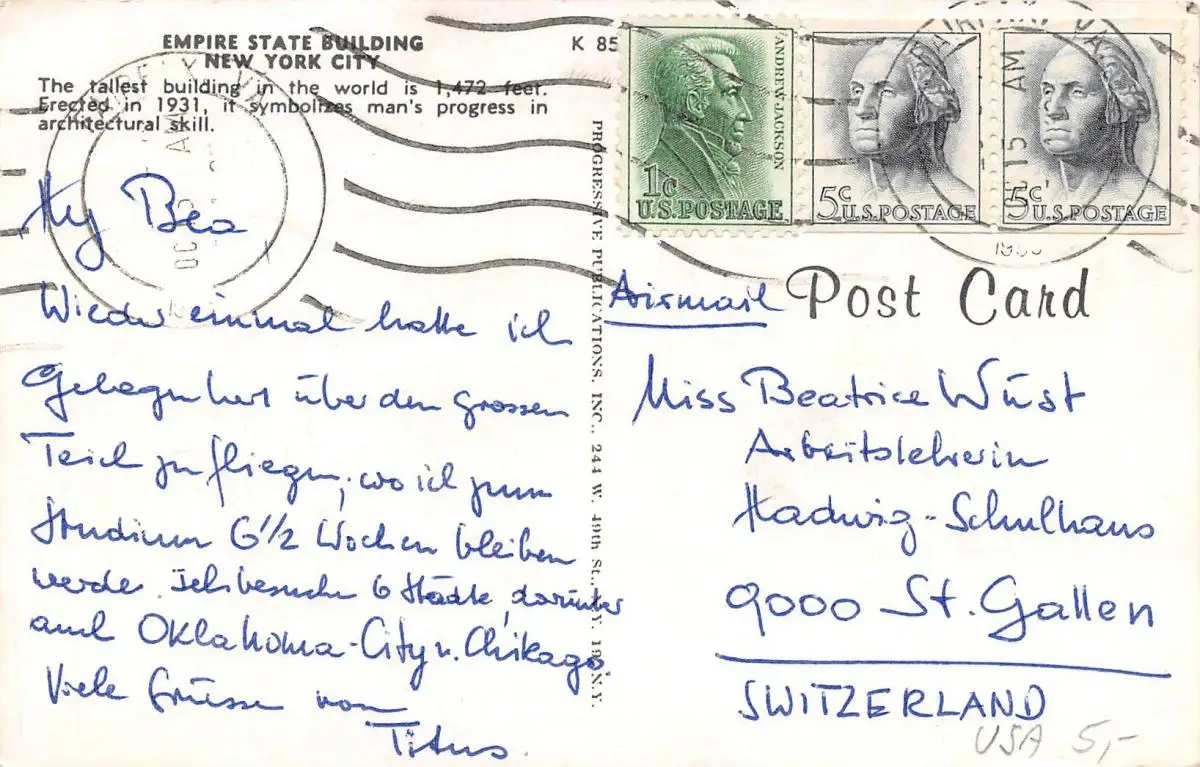 EMPIRE STATE BUILDING
NEW YORK CITY
The tallest building in the world is 1,472 feet.
Erected in 1931, it symbolizes man's progress in
architectural skill.
K 85
ANDREW JACKSON
1c
U.S. POSTAGE
5c
U.S. POSTAGE
5c
U.S. POSTAGE
AM
OC
15 AM
PROGRESSIVE PUBLICATIONS, INC., 244 W. 49th St., N.Y. 19, N.Y.
Hy Bea
Wieder einmal hatte ich
Gelegenheit über den grossen
Teich zu fliegen, wo ich zum
Studium 6 1/2 Wochen bleiben
werde. Ich besuche 6 Städte, darunter
auch Oklahoma-City u. Chikago.
Viele Grüsse von
Titus.
Airmail
Post Card
Miss Beatrice Wüst
Arbeitslehrerin
Hadwig-Schulhaus
9000 St. Gallen
SWITZERLAND
USA 5,-